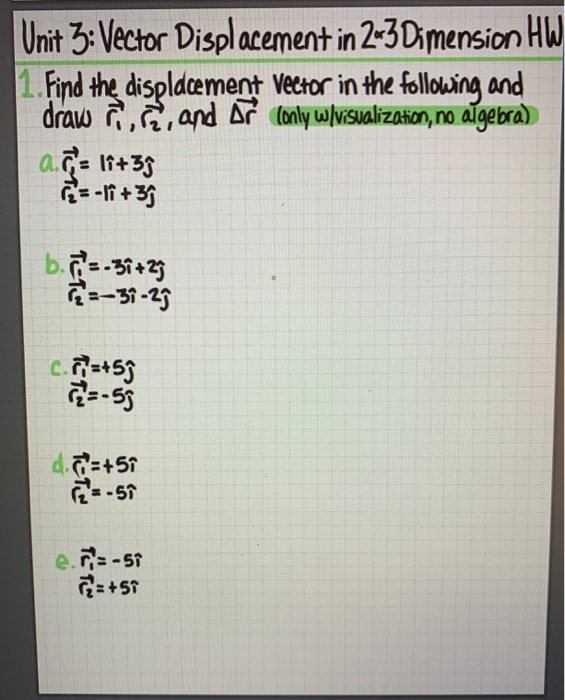 Unit 3: Vector Displacement in 2~3 Dimension HW
1. Find the displacement vector in the following and
draw r⃗₁, r⃗₂, and Δr⃗ (only w/visualization, no algebra)
a. r⃗₁ = 1î + 3ĵ
r⃗₂ = -1î + 3ĵ
b. r⃗₁ = -3î + 2ĵ
r⃗₂ = -3î - 2ĵ
c. r⃗₁ = +5ĵ
r⃗₂ = -5ĵ
d. r⃗₁ = +5î
r⃗₂ = -5î
e. r⃗₁ = -5î
r⃗₂ = +5î